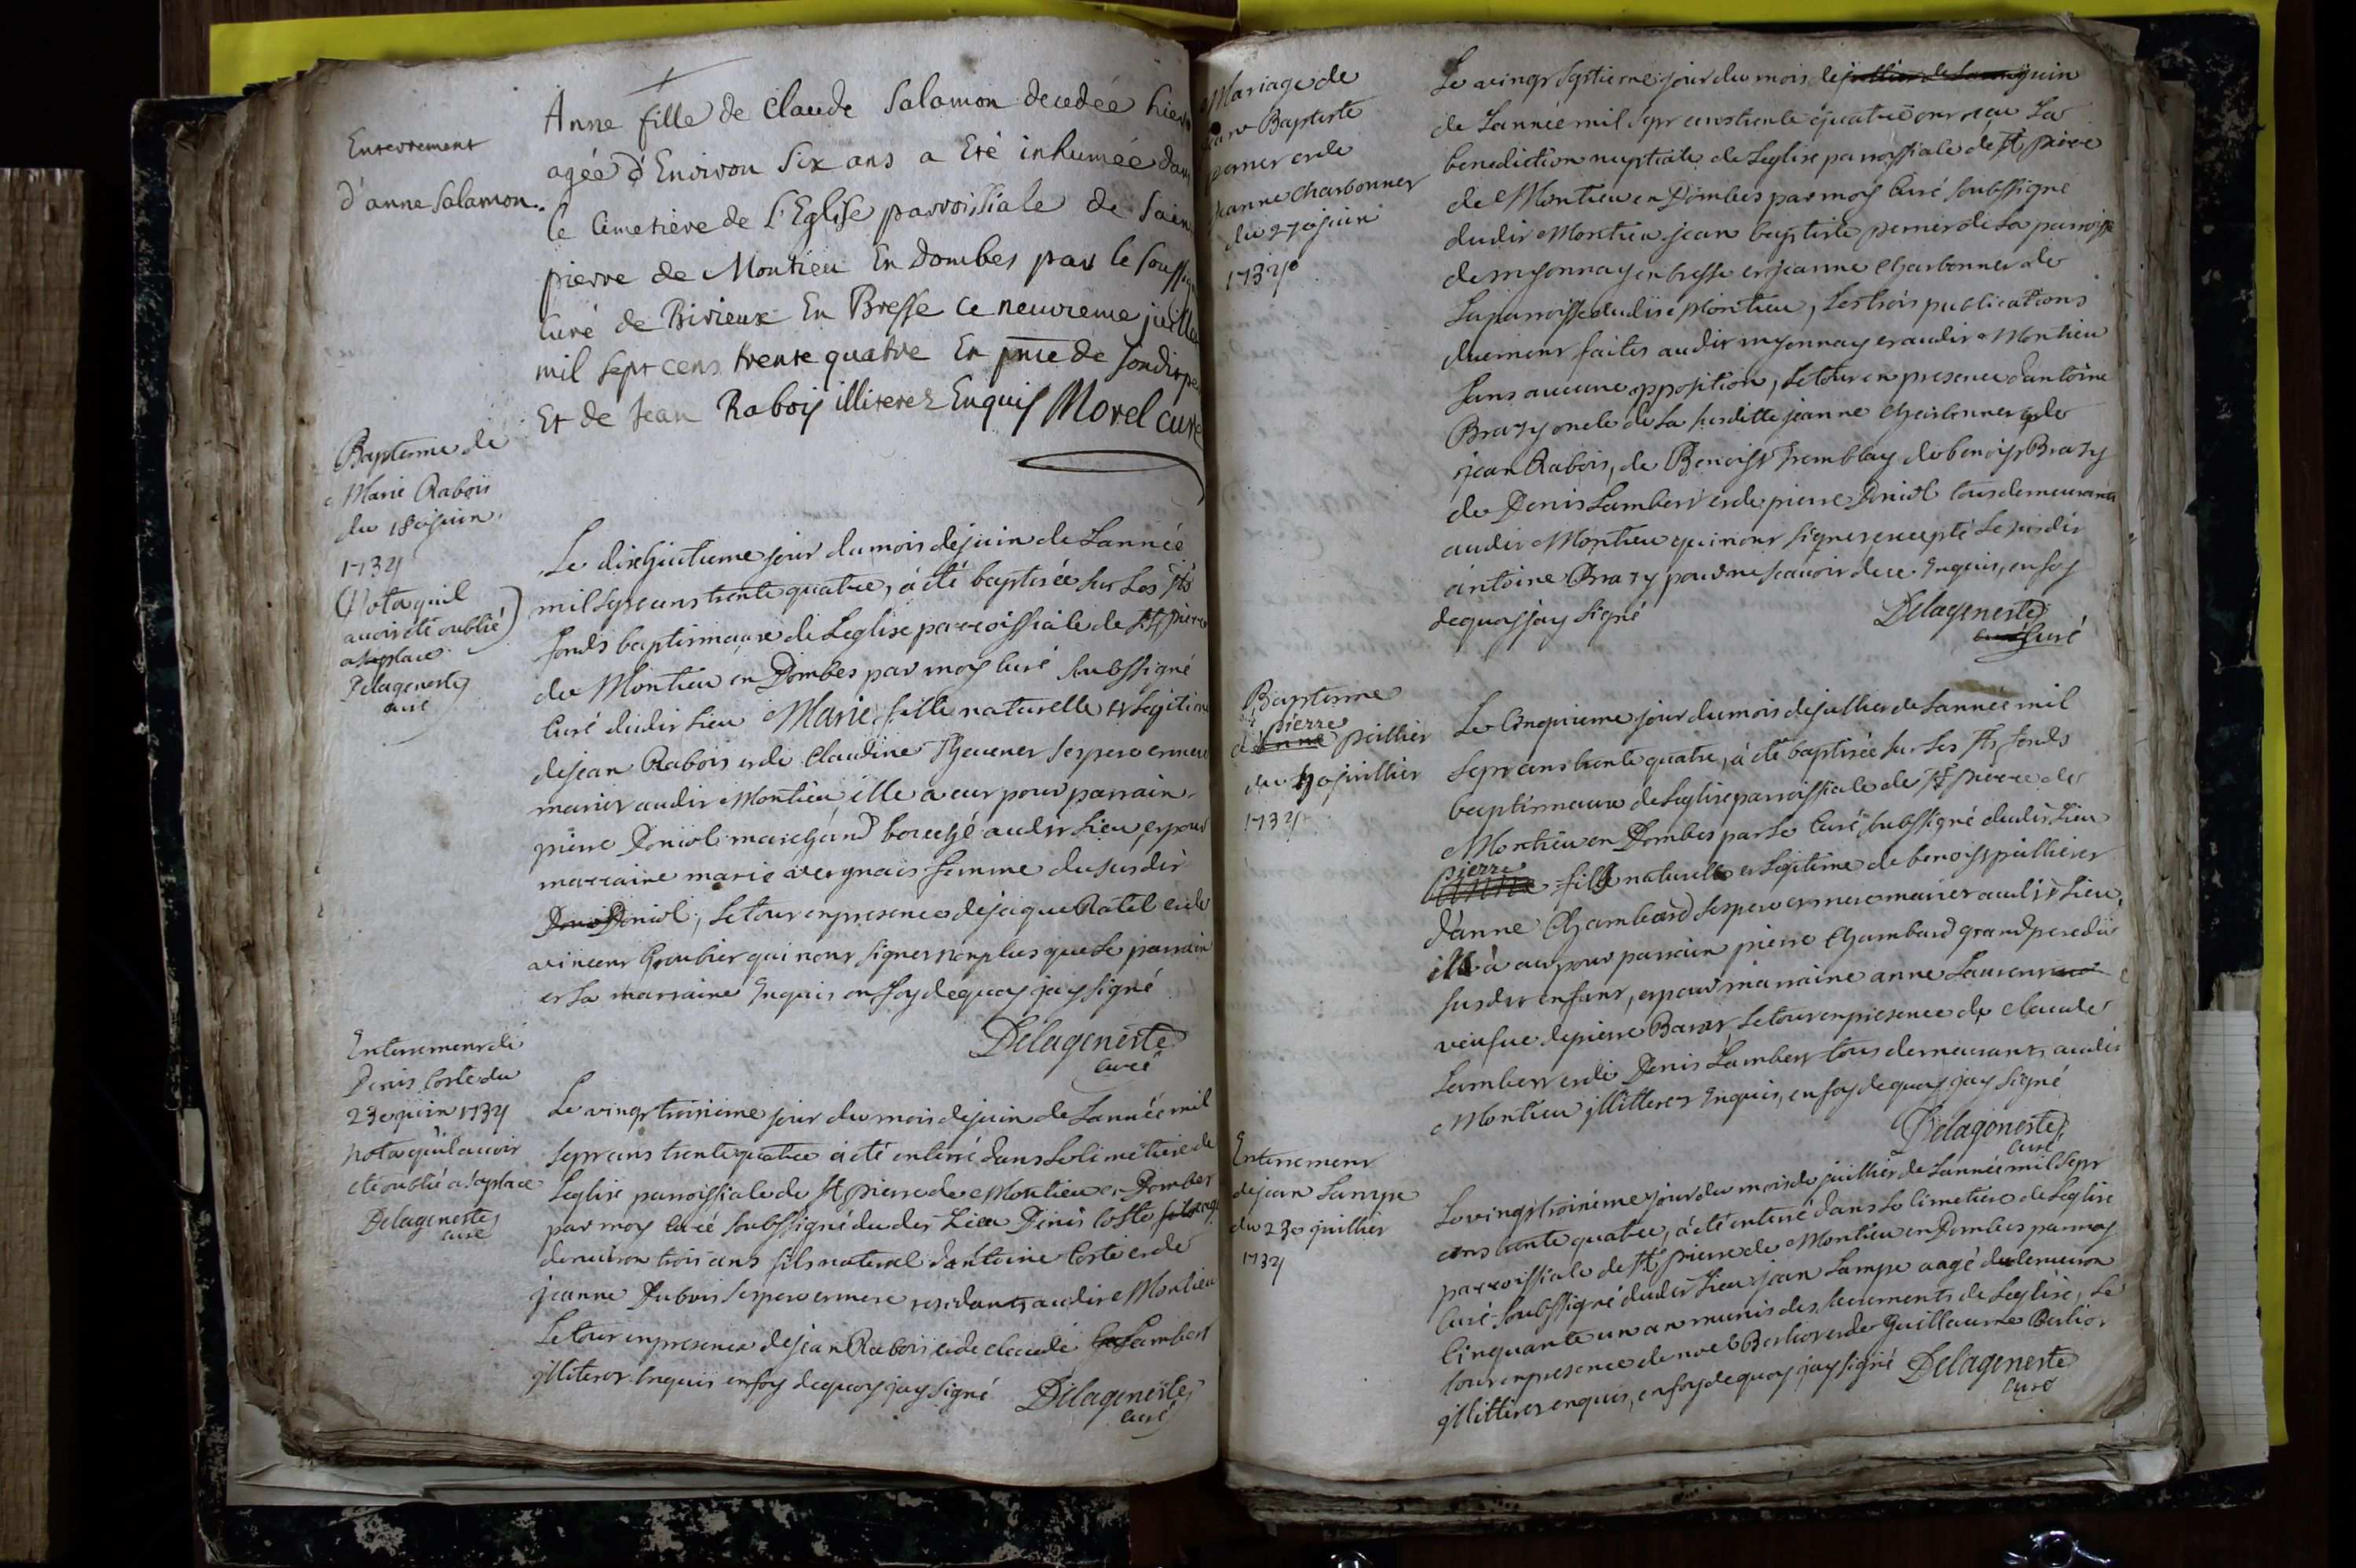 Enterrement
d'anne Salamon.
Anne fille de Claude Salamon decedée hier
agée d'Environ Six ans a Eté inhumée dans
le Cimetière de L'Eglise parroissiale de Saint
pierre de Montieu En Dombes par le souss
Curé de Birieux En Bresse ce neuvieme juillet
mil sept cens trente quatre En pnce de Sondit pe
Et de Jean Rabois illiterez Enquis Morel curé
Bapteme de
Marie Rabois
du 18e juin
1734
(Nota quil
avoit été oublié)
a sa place
Delageneste
curé
Le dixhuitieme jour du mois de juin de Lannée
mil sept cens trente quatre, à été baptisée sur Les sts
fonds baptismaux de Leglise parroissiale de st pierre
de Montieu en Dombes par moy Curé subssigné
Curé dudit Lieu Marie fille naturelle et Legitime
de jean Rabois et de Claudine Thevenet ses pere et mere
mariez audit Montieu elle a eut pour parrain
pierre Doniol marchand audit Lieu, et pour
marraine marie vergnais femme du susdit
Doniol, Le tout en presence de jaque Ratel et de
vincent Groubier qui n'ont signer non plus que Le parrain
et La marraine Enquis en foy dequoy jay signé
Delageneste
Curé
Enterrement de
Denis Coste du
23e juin 1734
nota qu'il avoit
eté oublié a sa place
Delageneste
curé
Le vingt troisieme jour du mois de juin de Lannée mil
sept cens trente quatre a été enterré dans Le Cimetiere de
Leglise parroissiale de st pierre de Montieu en Dombes
par moy Curé soubssigné dudit Lieu Denis Coste
denviron trois ans fils naturel d'antoine Coste et de
jeanne Dubois ses pere et mere residants audit Montieu
Le tout en presence de jean Rabois et de claude Lambert
illiterez Enquis en foy dequoy jay signé Delageneste
Curé
Mariage de
jean Baptiste
perrier et de
jeanne Charbonner
du 27e juin
1734
Le vingt septieme jour du mois de juin
de Lannée mil sept cens trente quatre ont reçu La
benediction nuptiale de Leglise parroissiale de st pierre
de Montieu en Dombes par moy Curé soubssigné
dudit Montieu jean baptiste perrier de La parroisse
de myonnay en bresse et jeanne Charbonner de
La parroisse dudit Montieu, Les trois publications
duement faites audit myonnay et audit Montieu
sans aucune opposition, Le tout en presence d'antoine
Brazy oncle de La susditte jeanne Charbonner de
jean Rabois, de Benoist Tremblay de benoist Brazy
de Denis Lambert et de pierre Doniol tous demeurants
audit Montieu qui n'ont signer excepté Le susdit
antoine Brazy pour ne scavoir de ce Enquis, en foy
dequoy jay signé
Delageneste
Curé
Bapteme
de pierre peillier
du 5e juillier
1734
Le Cinquieme jour du mois de juillier de Lannée mil
sept cens trente quatre, à été baptisée sur Les sts fonds
baptismaux de Leglise parroissiale de st pierre de
Montieu en Dombes par Le Curé subssigné dudit Lieu
pierre fils naturel et Legitime de benoist peillier et
d'anne Chambard ses pere et mere mariez audit Lieu,
il à eu pour parrain pierre Chambard grand pere du
susdit enfant, et pour marraine anne Laurent
veufve de pierre Le tout en presence de claude
Lambert et de Denis Lambert tous demeurants audit
Montieu illitterez Enquis, en foy dequoy jay signé
Delageneste
Curé
Enterrement
de jean Lampe
du 23e juillier
1734
Le vingt troisieme jour du mois de juillier de Lannée mil sept
cens trente quatre, à été enterré dans Le Cimetiere de Leglise
parroissiale de st pierre de Montieu en Dombes par moy
Curé soubssigné dudit Lieu jean Lampe aagé denviron
Cinquante un an munis des sacrements de Leglise, Le
tout en presence de noel Berlior et de Guillaume Berlior
illitterez enquis, en foy de quoy jay signé Delageneste
Curé